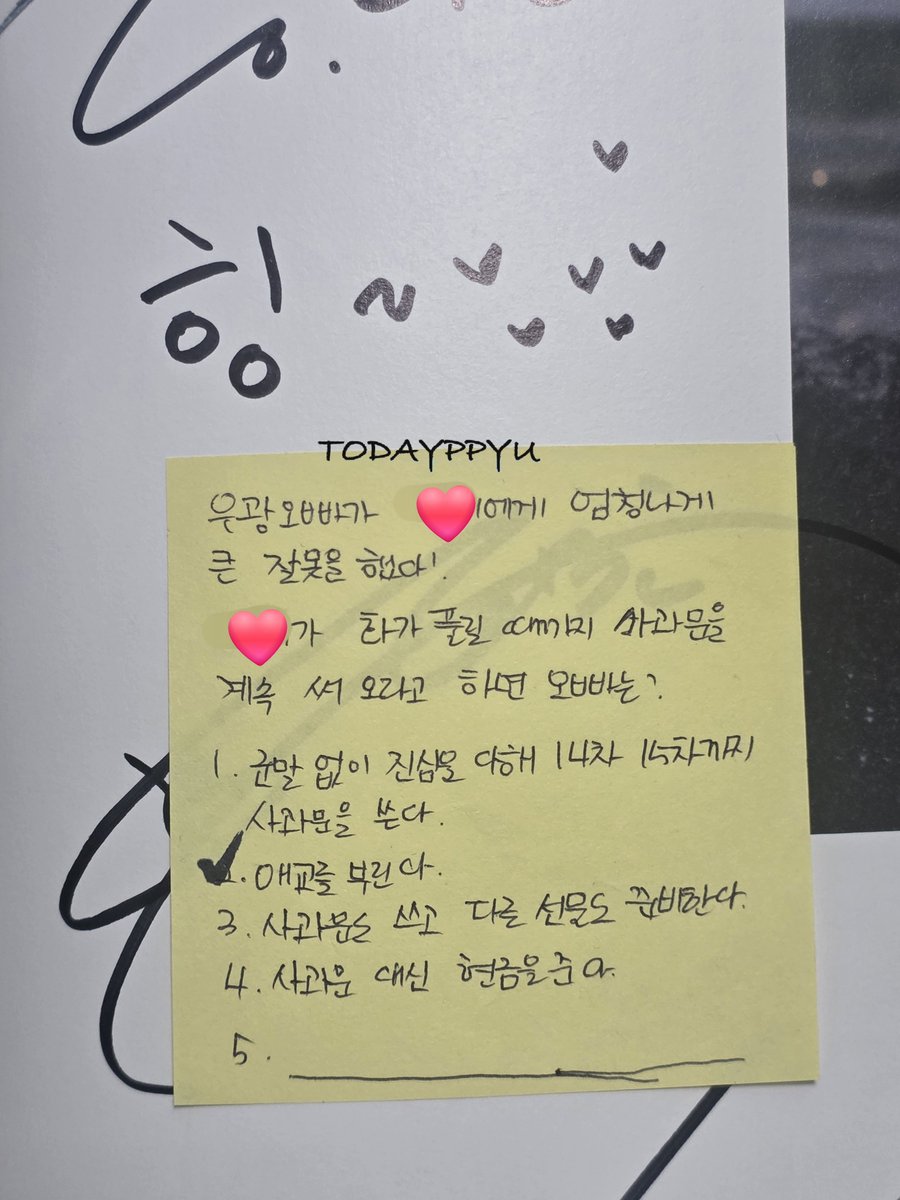 힝~
TODAYPPYU
우광오빠가 이에게 엄청나게
큰 잘못을 했다!
가 화가 풀릴 때까지 사과문을
계속 써 오라고 하면 오빠는?
1. 군말 없이 진심을 다해 14차 15차까지
사과문을 쓴다.
2. 애교를 부린다.
3. 사과문도 쓰고 다른 선물도 준비한다.
4. 사과문 대신 현금을 준다.
5.